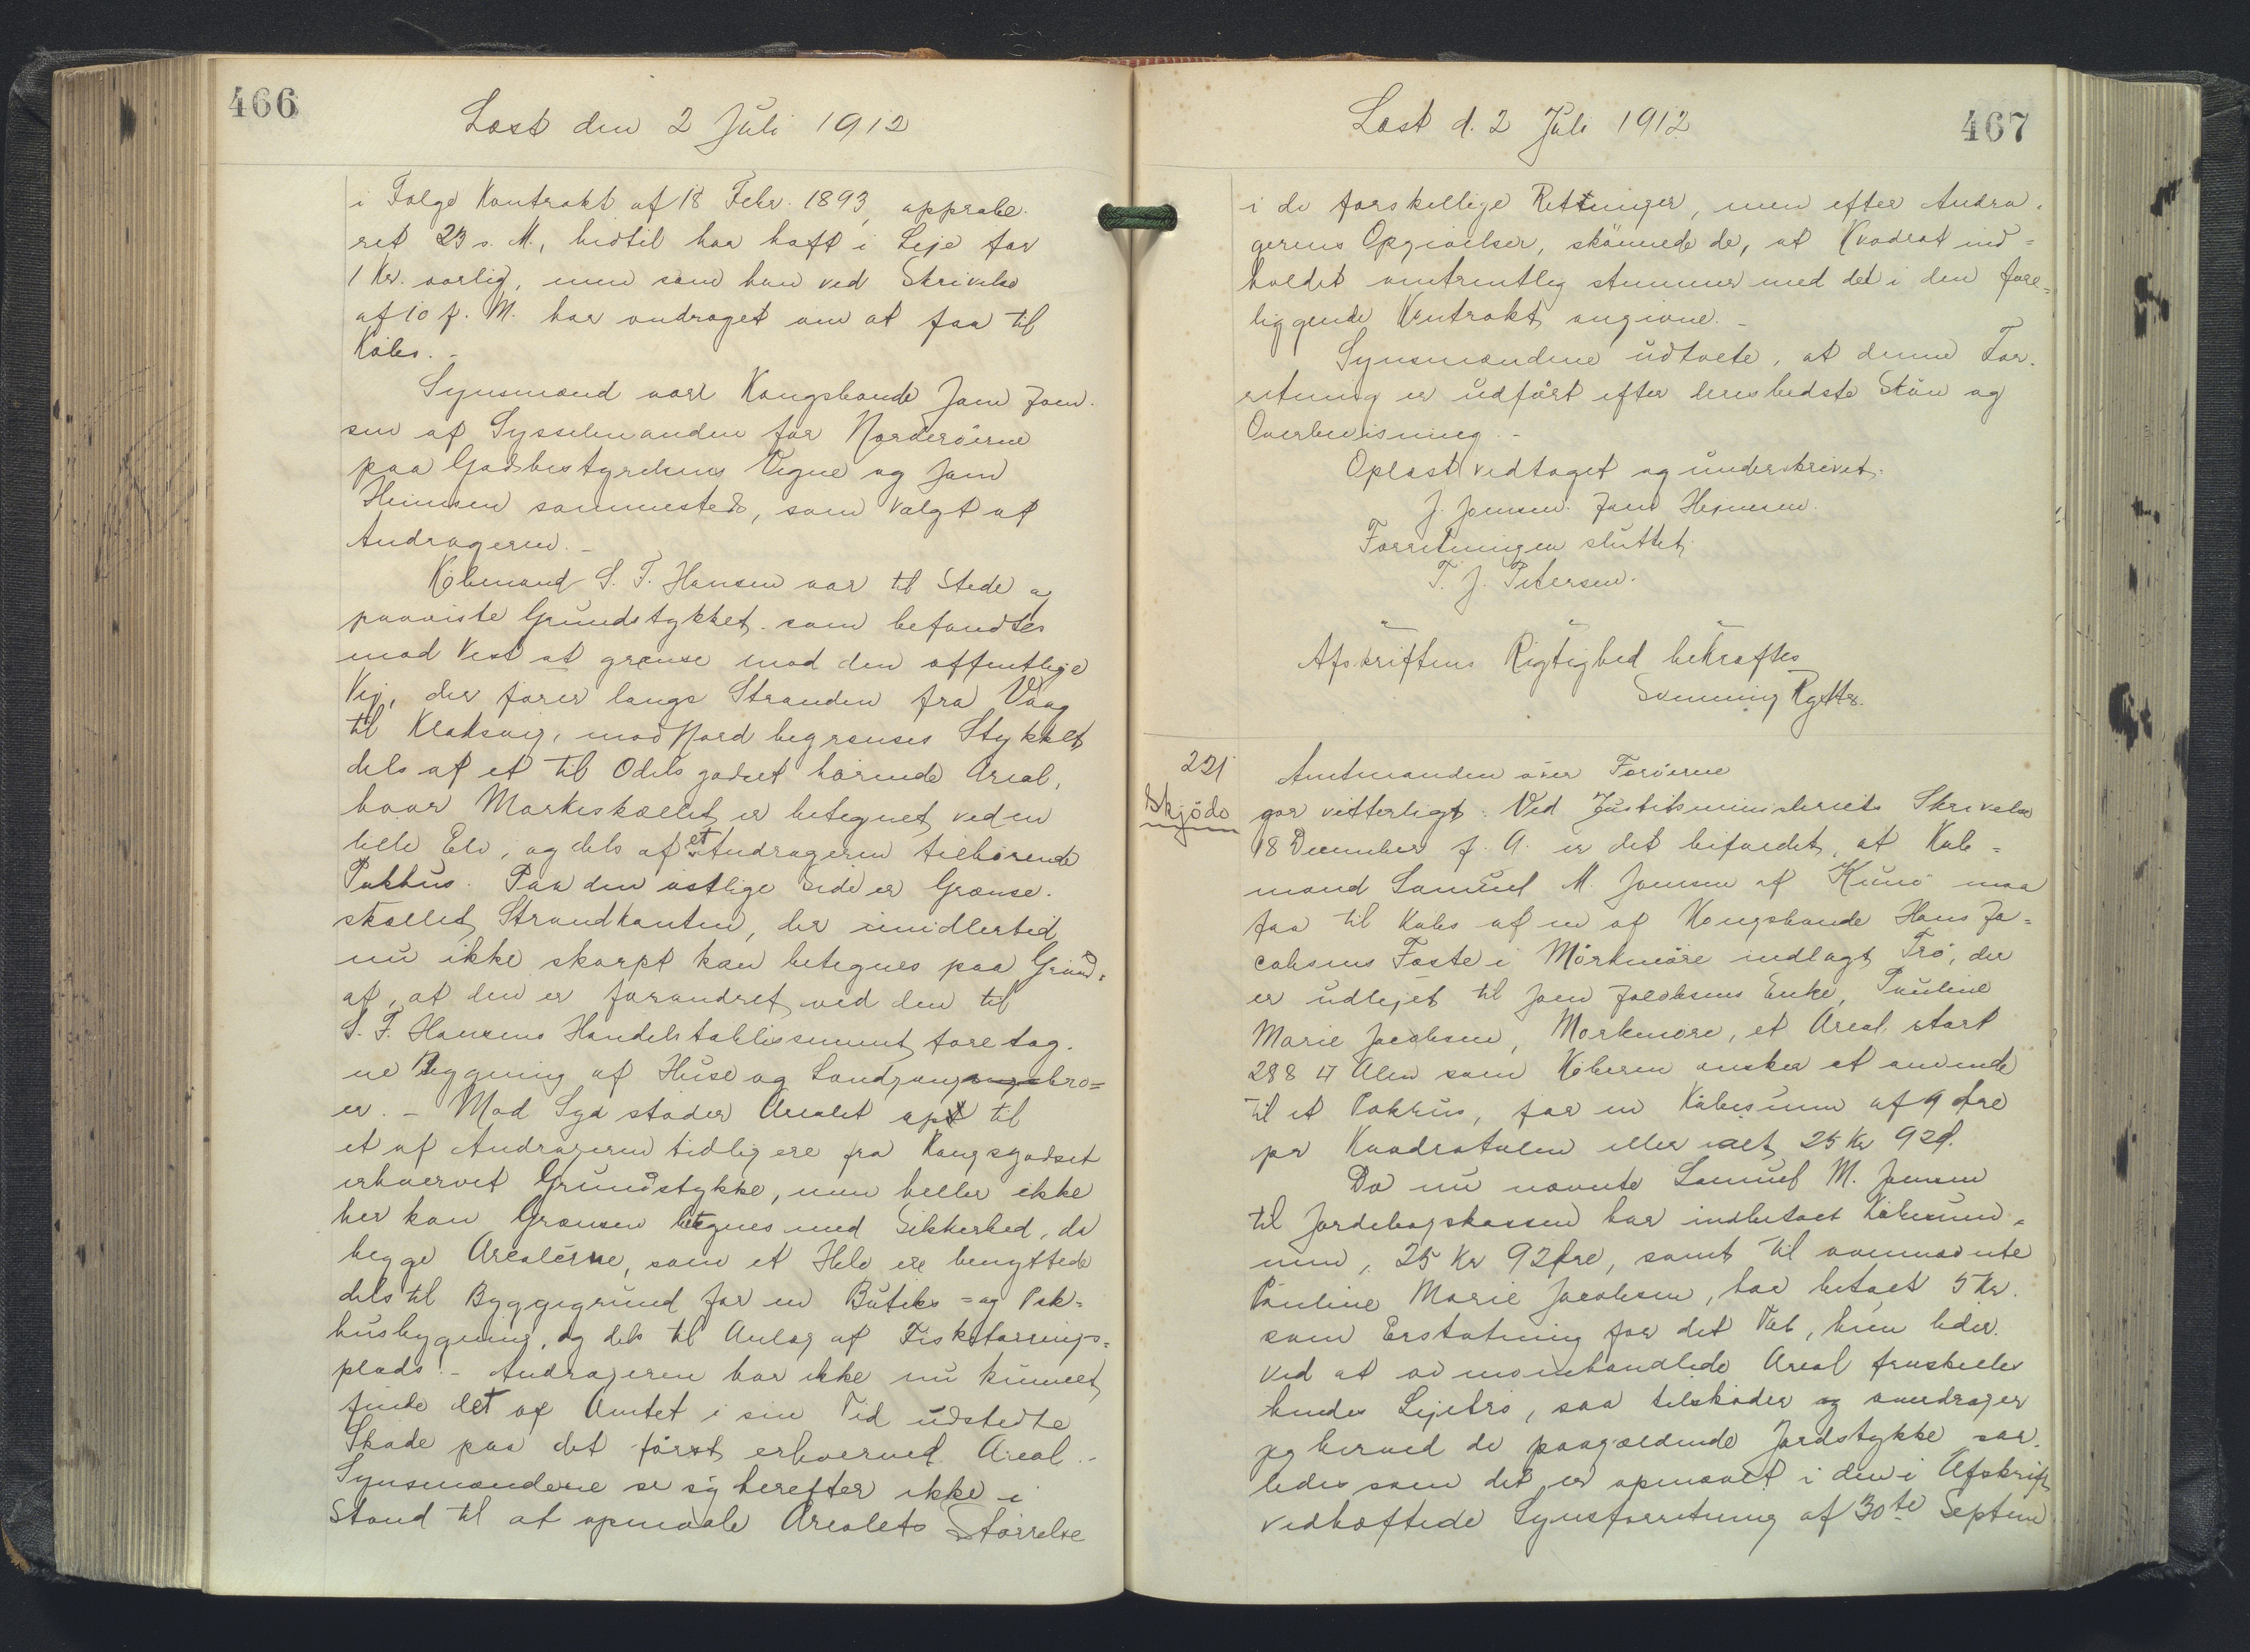 466
Læst den 2 Juli 1912
i Følge Kontrakt af 18 Febr. 1893, approbe-
ret 23 s. M., hidtil har haft i Leje for
1 Kr. aarlig, men som han ved Skrivelse
af 10 f. M. har andraget om at faa til
Købs. -
Synsmænd vare Kongsbonde Joen Joen-
sen af Sysselmanden for Norderøerne
paa Godsbestyrelsens Vegne og Joen
Heinesen sammesteds, som valgt af
Andrageren. -
Købmand S. F. Hansen var til Stede og
paaviste Grundstykket, som befandtes
mod Vest at grænse mod den offentlige
Vej, der fører langs Stranden fra Vaag
til Klaksvig, mod Nord begrænses Stykket
dels af et til Odelsgodset hørende Areal,
hvor Markeskællet er betegnet ved en
lille Elv, og dels af et Andrageren tilhørende
Pakhus. Paa den østlige Side er Grænse-
skællet Strandkanten, der imidlertid
nu ikke skarpt kan betegnes paa Grund
af, at den er forandret ved den til
S. F. Hansens Handelsetablissement foretag-
ne Bygning af Huse og Landgangsbro=
er. - Mod Syd støder Arealet op til
et af Andrageren tidligere fra Kongsgodset
erhvervet Grundstykke, men heller ikke
her kan Grænsen betegnes med Sikkerhed, da
begge Arealerne, som et Hele ere benyttede
dels til Byggegrund for en Butiks= og Pak=
husbygning, og dels til Anlæg af Fisketørrings=
plads. - Andrageren har ikke nu kunnet
finde det af Amtet i sin Tid udstedte
Skøde paa det først erhvervede Areal. -
Synsmændene se sig herefter ikke i
Stand til at opmaale Arealets Størrelse
Læst d. 2 Juli 1912
467
i de forskellige Retninger, men efter Andra-
gerens Opgivelser, skønnede de, at Kvadratind=
holdet omtrentlig stemmer med det i den fore=
liggende Kontrakt angivne. -
Synsmændene udtalte, at denne For-
retning er udført efter deres bedste Skøn og
Overbevisning. -
Oplæst vedtaget og underskrevet.
J. Joensen. Joen Heinesen.
Forretningen sluttet.
T. J. Petersen.
Afskriftens Rigtighed bekræftes
Svenning Rytter.
221
Amtmanden over Færøerne
Skjøde
gør vitterligt: Ved Justitsministeriets Skrivelse
18 December f. A. er det bifaldet, at Køb=
mand Samuel M. Joensen af Kunø maa
faa til Købs af en af Kongsbonde Hans Ja=
cobsens Fæste i Mørkmøre indlagt Trø, der
er udlejet til Joen Jacobsens Enke, Pauline
Marie Jacobsen, Mørkmøre, et Areal stort
288 □ Alen som Køberen ønsker at anvende
til et Pakhus, for en Købesum af 9 Øre
pr Kvadratalen eller ialt 25 Kr 92 Ø.
Da nu nævnte Samuel M. Joensen
til Jordebogskassen har indbetalt Købesum=
men, 25 Kr 92 Øre, samt til ovennævnte
Pauline Marie Jacobsen, har betalt 5 Kr.
som Erstatning for det Tab, hun lider
ved at ovenomhandlede Areal fraskilles
hendes Lejetrø, saa tilskøder og overdrager
jeg herved de paagældende Jordstykke saa=
ledes som det er opmaalt i den i Afskrift
vedhæftede Synsforretning af 30te Septem